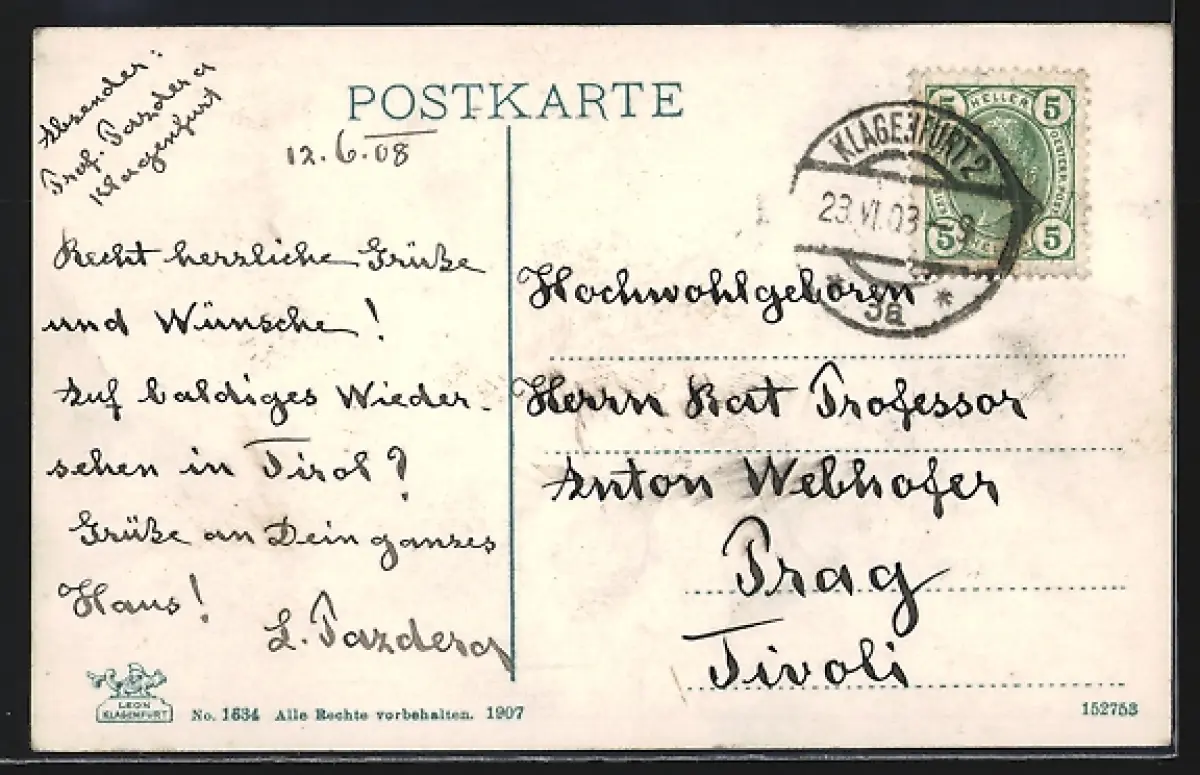 Absender:
Prof. Pazdera
Klagenfurt
POSTKARTE
12.6.08
Recht herzliche Grüße
und Wünsche!
Auf baldiges Wieder-
sehen in Tirol?
Grüße an Dein ganzes
Haus!
L. Pazdera
5 HELLER 5
5 5
KLAGENFURT 2
23.VI.03 9
* 3a *
Hochwohlgeboren
Herrn Rat Professor
Anton Webhofer
Prag
Tivoli
LEON
KLAGENFURT
No. 1634 Alle Rechte vorbehalten. 1907
152753